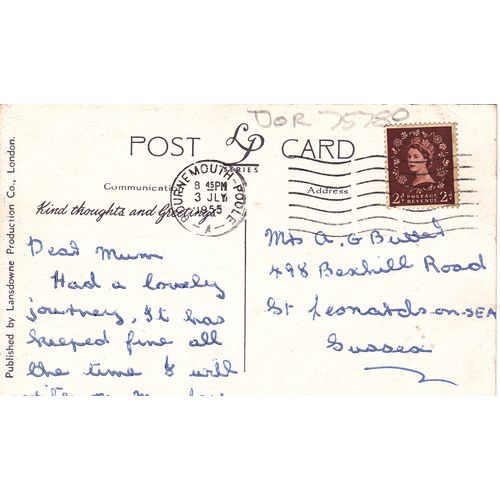 DOR 75780
POST LP CARD
SERIES
BOURNEMOUTH-POOLE
8 45PM
3 JLY
1955
A
POSTAGE
REVENUE
2D 2D
Communication
Address
Kind thoughts and Greetings
Dear Mum
Had a lovely
journey, It has
keeped fine all
the time I will
Mrs A. G Butter
498 Bexhill Road
St Leonards-on-SEA
Sussex
Published by Lansdowne Production Co., London.